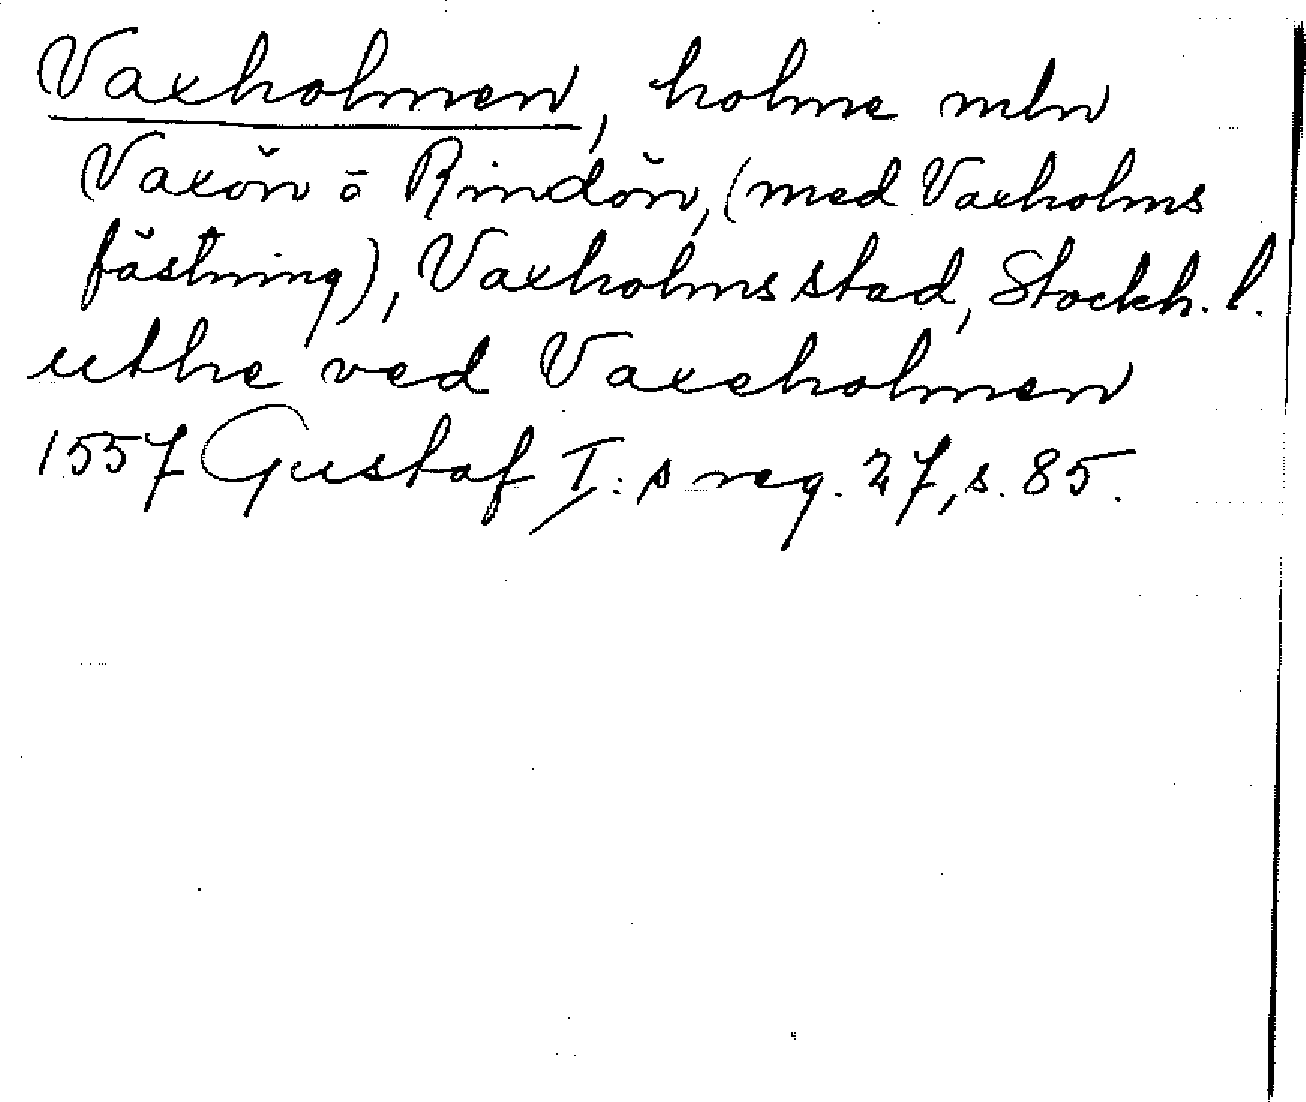 Vaxholmen, holme mln
Vaxön o Rindön, (med Vaxholms
fästning), Vaxholms stad, Stockh. l.
uthe ved Vaxeholmen
1557 Gustaf I:s reg. 27, s. 85.